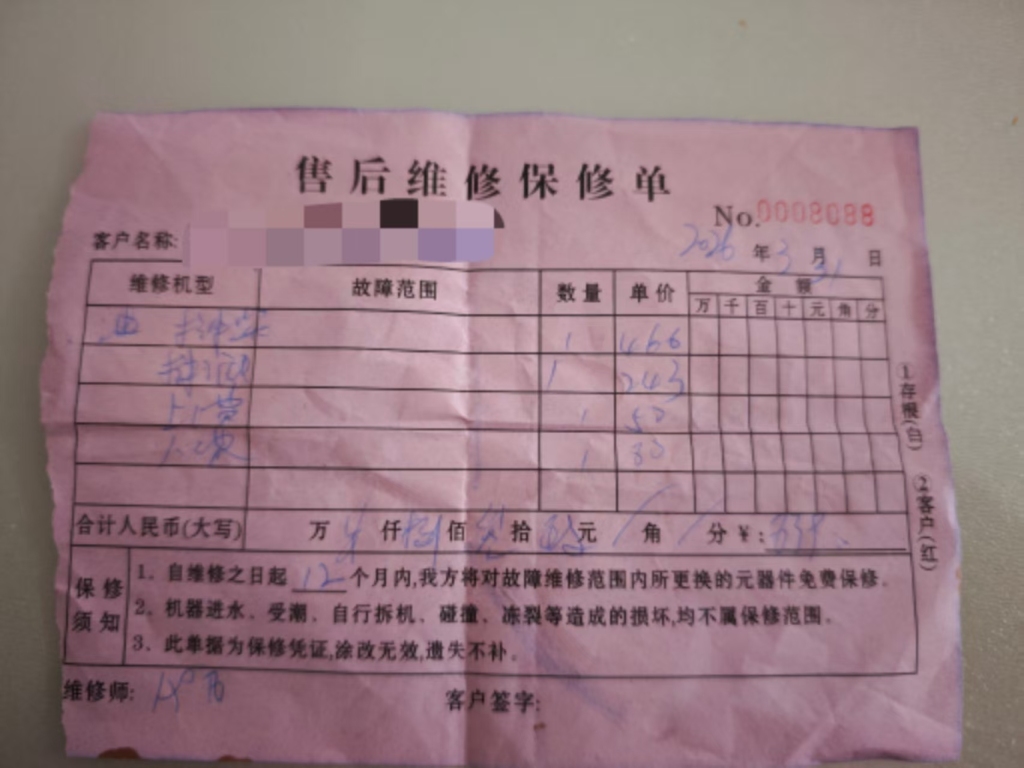 售后维修保修单
No.0008088
客户名称:
2026年3月31日
维修机型 故障范围 数量 单价 金额
万 千 百 十 元 角 分
1 466
1 243
上门费 1 50
人工费 1 80
合计人民币(大写) 万 仟 佰 拾 元 / 角 / 分 ¥:
保修须知
1、自维修之日起 12 个月内,我方将对故障维修范围内所更换的元器件免费保修。
2、机器进水、受潮、自行拆机、碰撞、冻裂等造成的损坏,均不属保修范围。
3、此单据为保修凭证,涂改无效,遗失不补。
维修师:
客户签字:
①存根(白) ②客户(红)